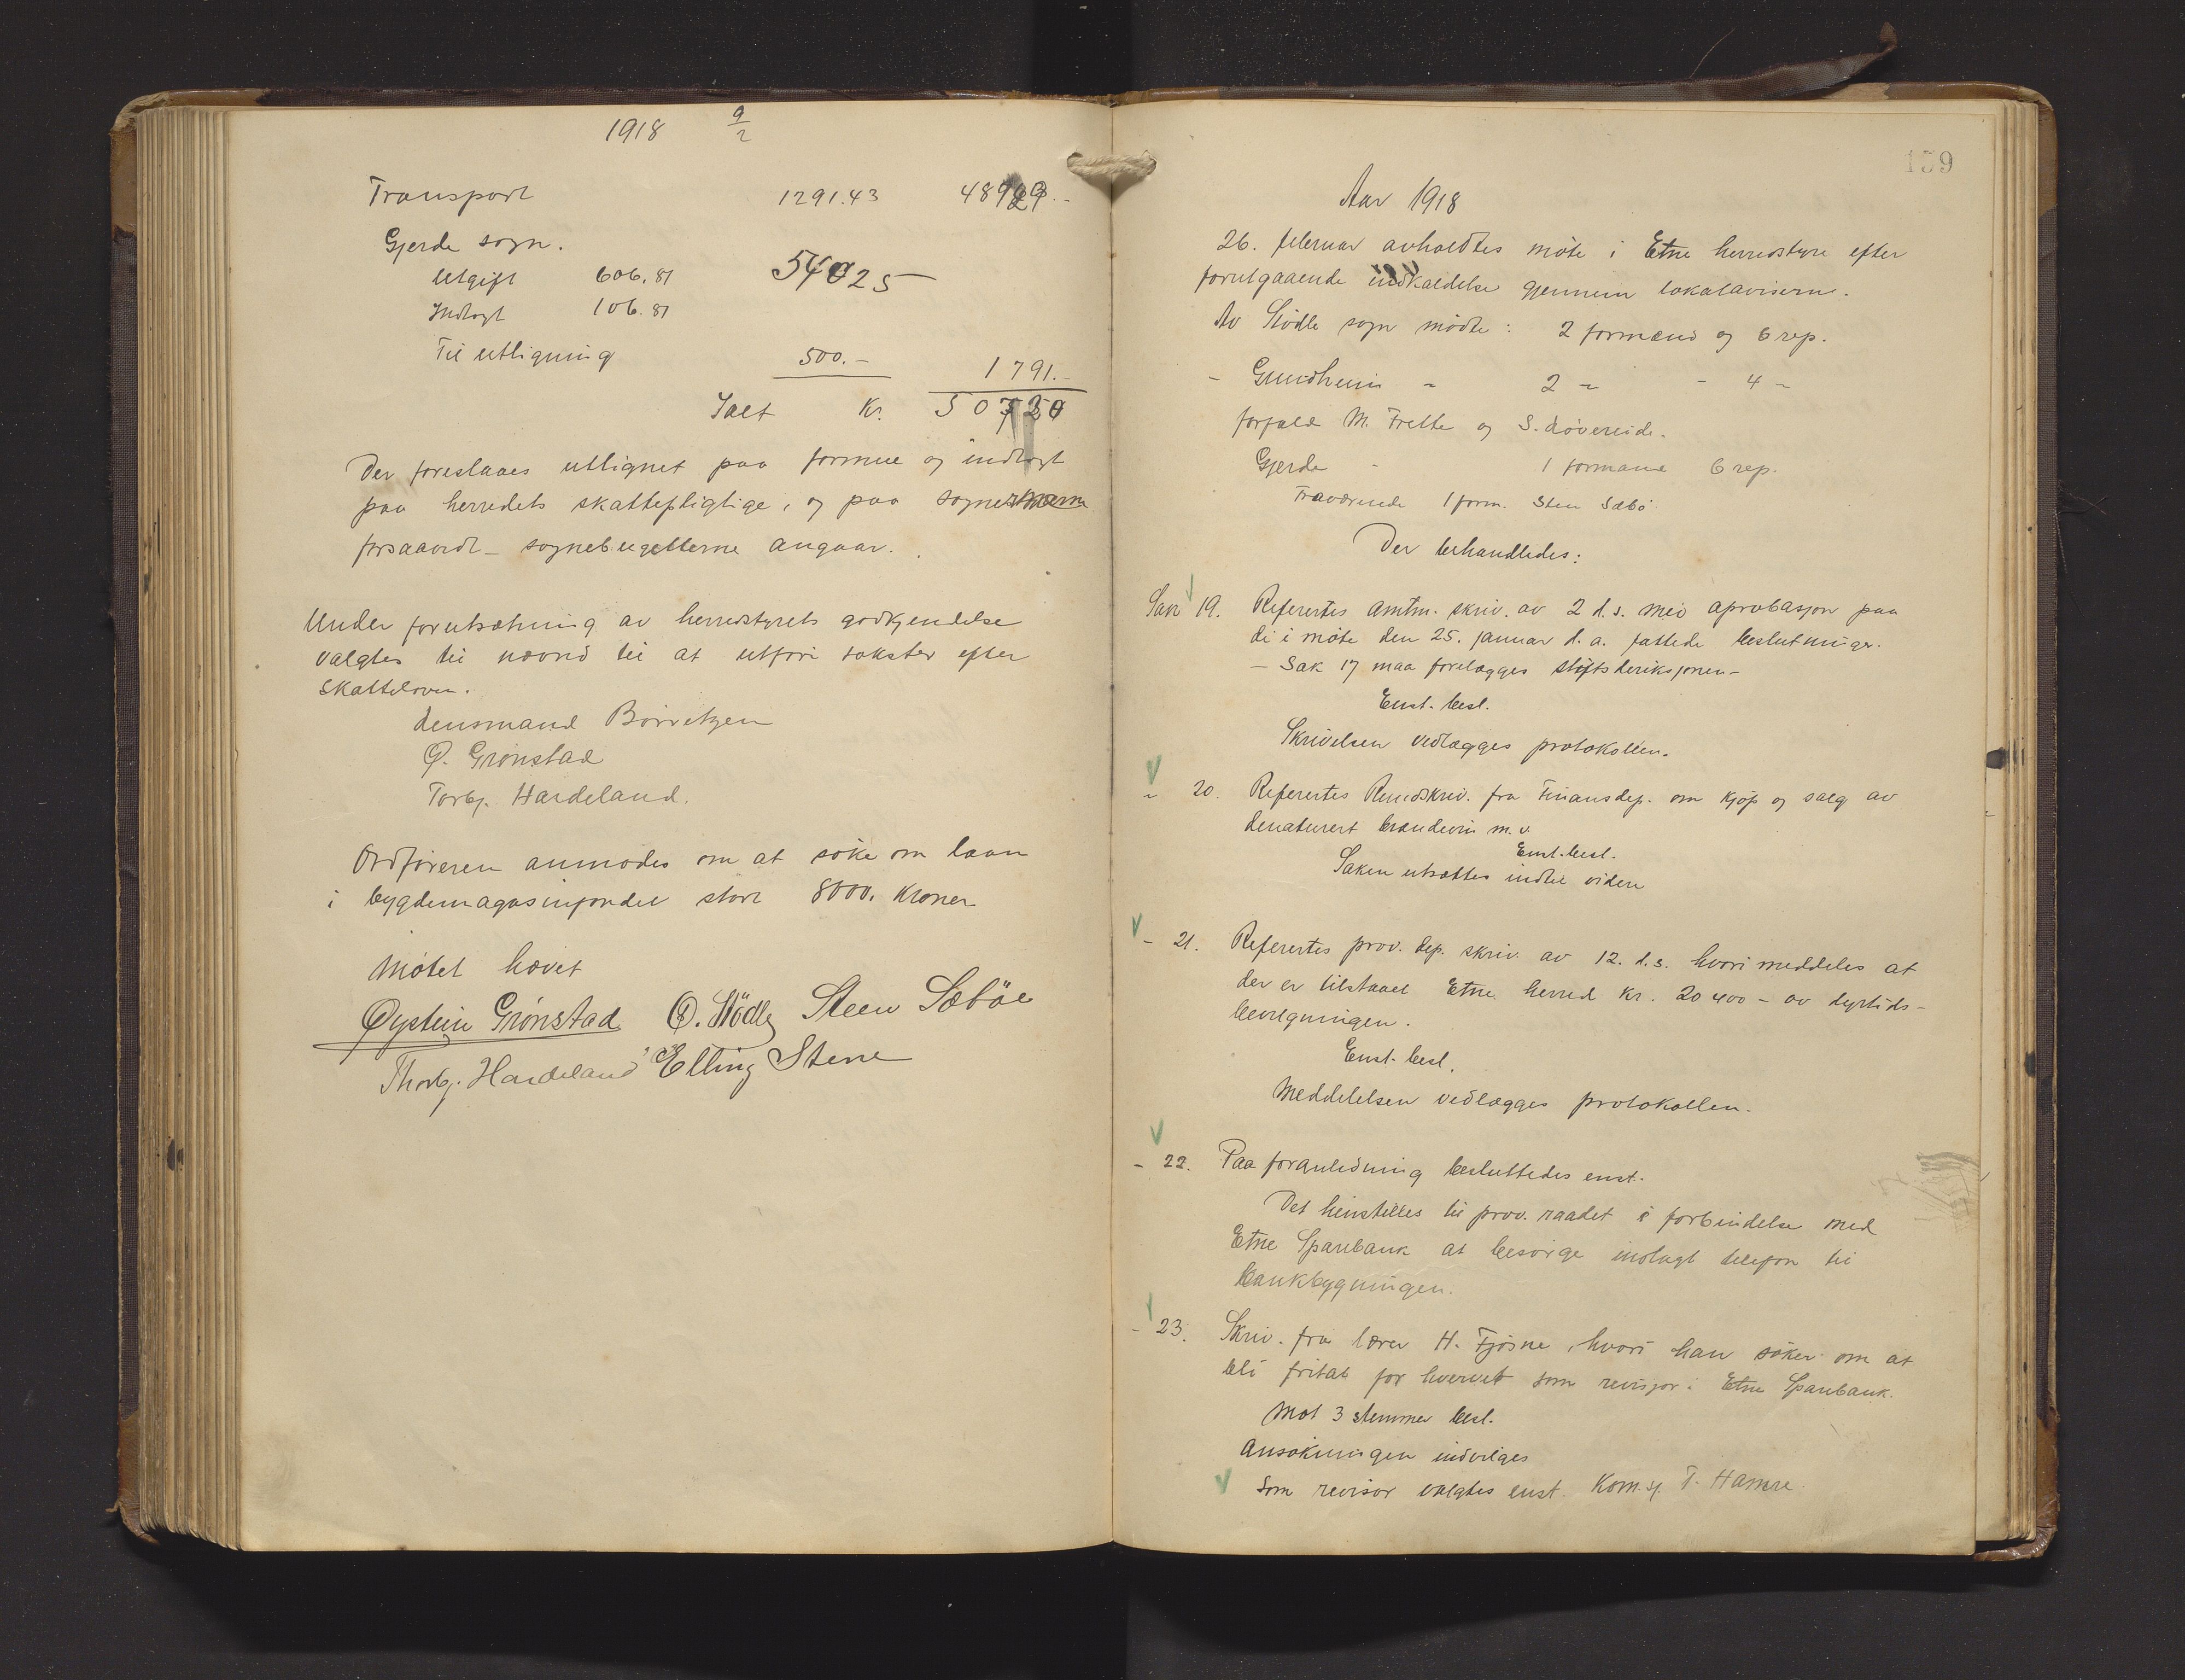 1918 9/2
Transport 1291.43 48929.-
Gjerde sogn.
Utgift 606.81 54025
Indtægt 106.81
Til utligning 500.- 1791.-
Ialt Kr. 50720
Der foreslaaes utlignet paa formue og indtægt
paa herredets skattepligtige, og paa sognets
forsaavidt - sognebugetterne angaar.
Under forutsætning av herredstyrets godkjendelse
valgtes til nævnd til at utføre takster efter
skatteloven.
Lensmand Børretzen
Ø. Grønstad
Torbj. Hardeland.
Ordføreren anmodes om at søke om laan
i bygdemagasinfondet stort 8000. kroner
Møtet hævet
Øystein Grønstad O. Stödle Steen Sæböe
Thorbj. Hardeland Elling Stene
159
Aar 1918
26. februar avholdtes møte i Etne herredstyre efter
forutgaaende indkaldelse gjennem lokalaviserne.
Av Stødle sogn mødte: 2 formænd og 6 rep.
- Grindheim - 2 - - 4 -
forfald M. Frette og S. Løvereide.
Gjerde - 1 formand 6 rep.
Fraværende 1 form. Sten Sæbø
Der behandledes:
Sak 19. Refertes amtm. skriv. av 2 d.s. med aprobasjon paa
de i møte den 25. januar d.a. fattede beslutninger.
- Sak 17 maa forelægges stiftsdireksjonen -
Enst. besl.
Skrivelsen vedlægges protokollen.
- 20. Refertes Rundskriv. fra Finansdep. om kjøp og salg av
denaturert brændevin m.v.
Enst. besl.
Saken utsættes indtil videre
- 21. Refertes prov. dep. skriv. av 12. d.s. hvori meddeles at
der er tilstaaet Etne herred kr. 20400 - av dyrtids-
bevilgningen.
Enst. besl.
Meddelelsen vedlægges protokollen.
- 22. Paa foranledning besluttedes enst.
Det henstilles til prov. raadet i forbindelse med
Etne Sparebank at besørge indlagt telefon til
bankbygningen.
- 23. Skriv. fra lærer H. Fjøsne, hvori han søker om at
bli fritat for hvervet som revisjor i Etne Sparebank.
Mot 3 stemmer besl.
Ansøkningen indvilges
Som revisor valgtes enst. Kom. sj. T. Hamre.